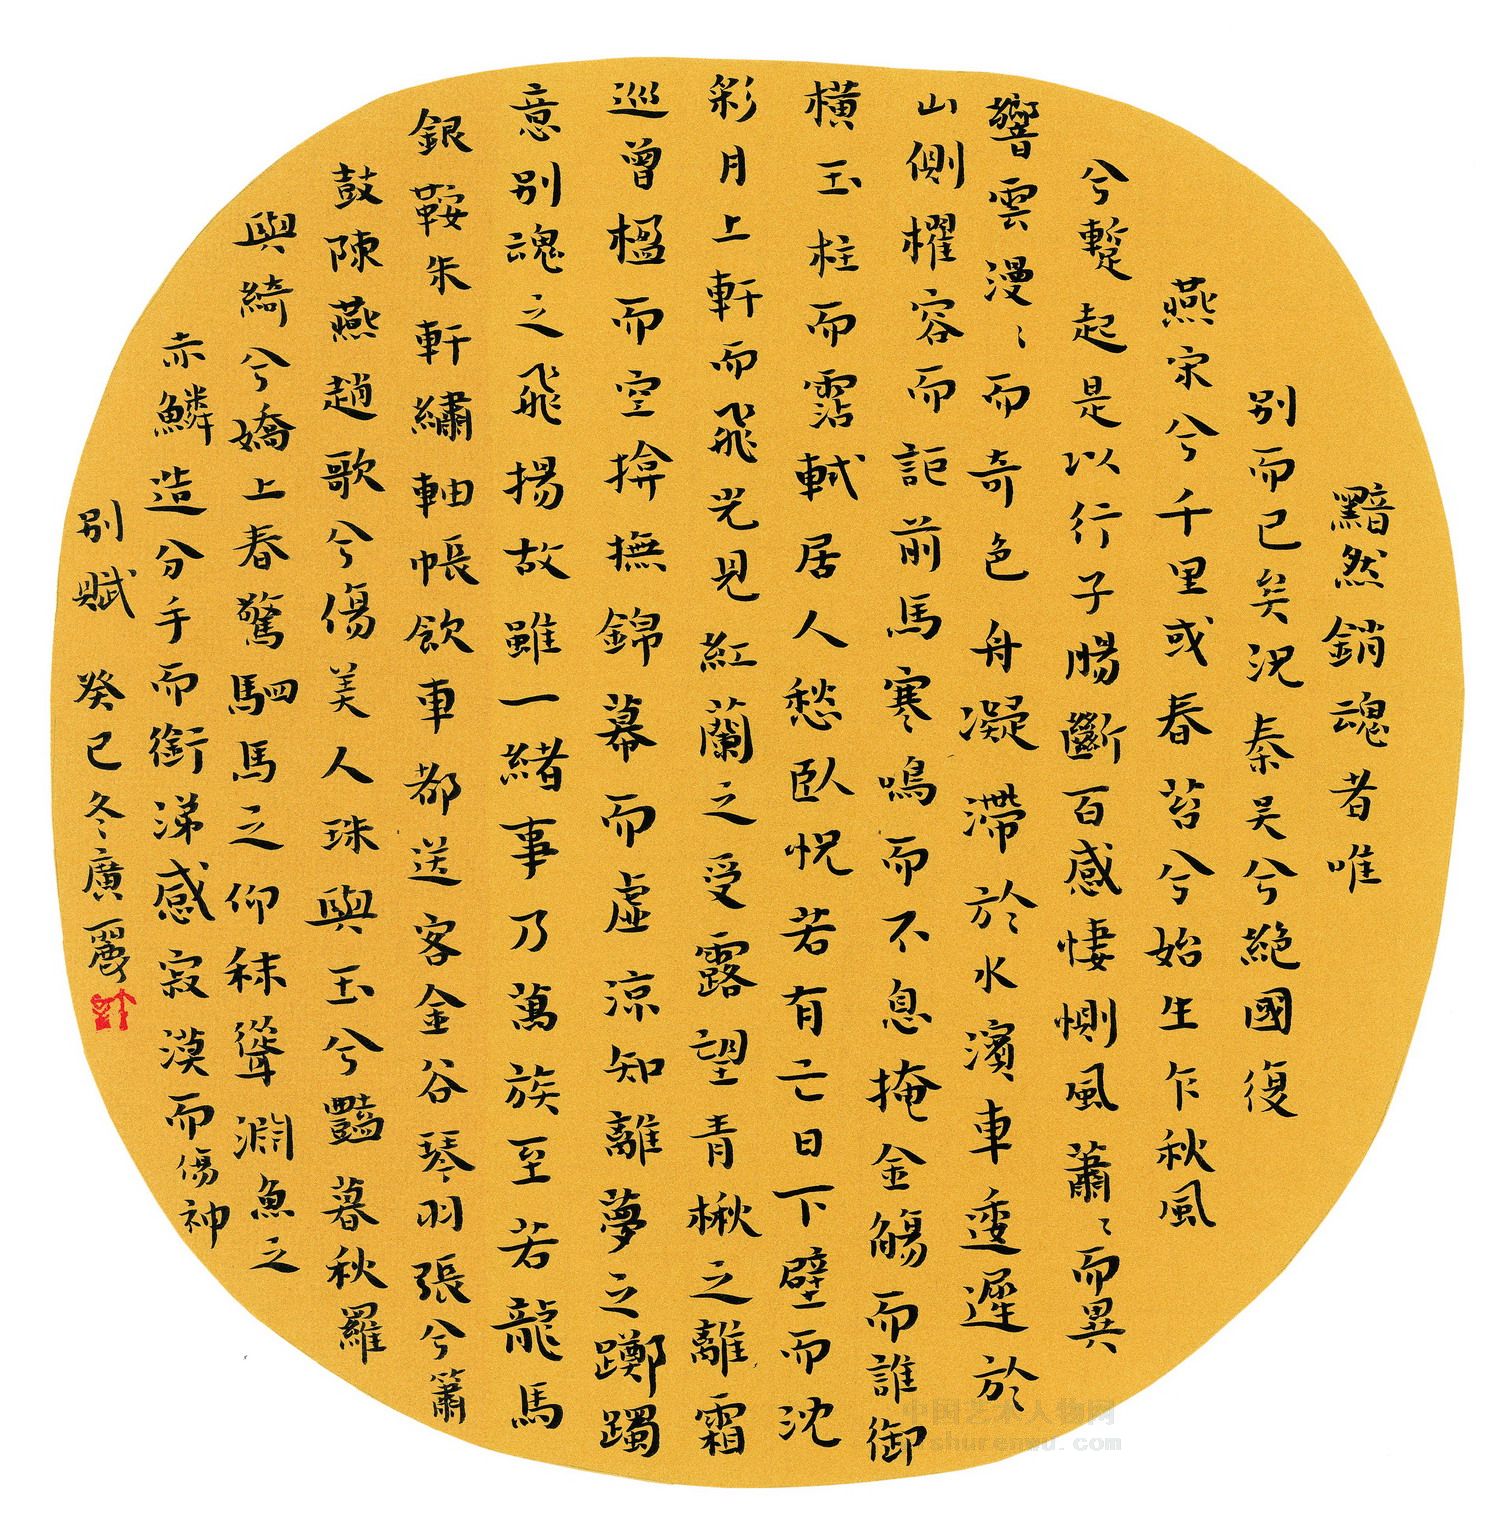 黯然銷魂者唯
別而已矣況秦吴兮絕國復
燕宋兮千里或春苔兮始生乍秋風
兮蹔起是以行子腸斷百感悽惻風蕭〻而異
響雲漫〻而奇色舟凝滯於水濱車逶遲於
山側櫂容而詎前馬寒鳴而不息掩金觴而誰御
橫玉柱而霑軾居人愁臥怳若有亡日下壁而沈
彩月上軒而飛光見紅蘭之受露望青楸之離霜
巡曾楹而空揜撫錦幕而虛涼知離夢之躑躅
意別魂之飛揚故雖一緒事乃萬族至若龍馬
銀鞍朱軒繡軸帳飲車都送客金谷琴羽張兮簫
鼓陳燕趙歌兮傷美人珠與玉兮豔暮秋羅
與綺兮嬌上春驚駟馬之仰秣聳淵魚之
赤鱗造分手而銜涕感寂漠而傷神
別賦 癸巳冬廣麗
中国艺术人物网
ishurenwu.com